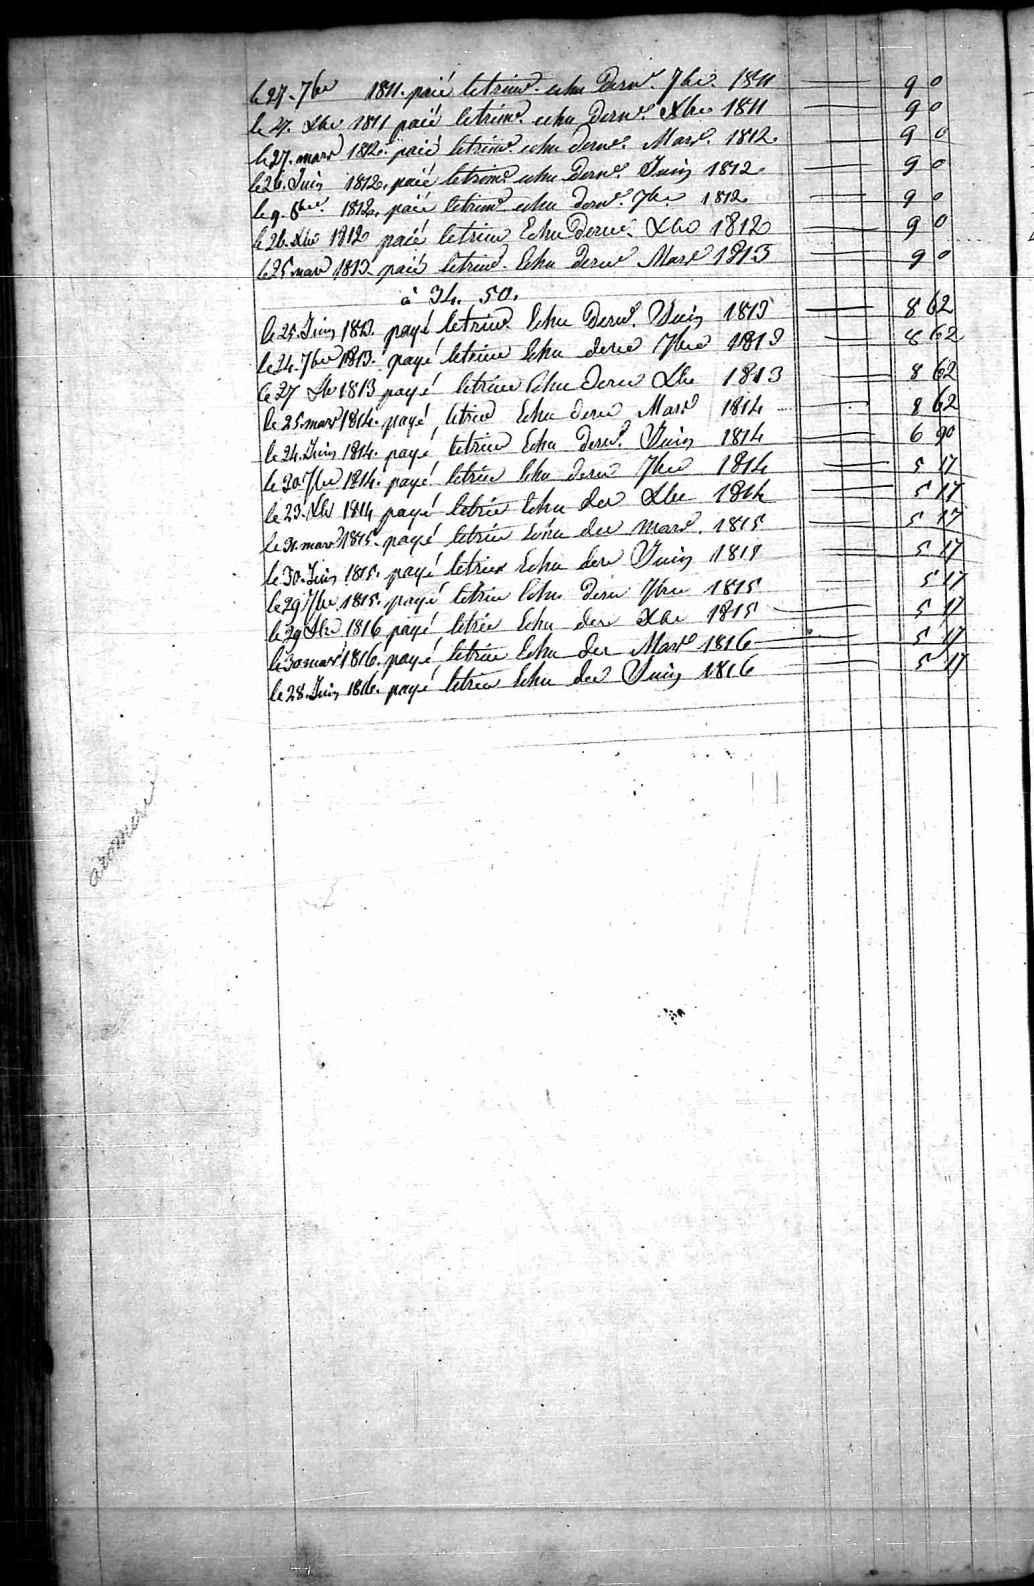 le 27. 7bre 1811. païé le trimre. echu dernr. 7bre. 1811 9 0
le 27. Xbre 1811 païé le trimre. echu dernr. Xbre 1811 9 0
le 27. mars 1812. païé le trimre. echu dernr. Mars. 1812. 9 0
le 26. Juin 1812. païé le trimre. echu dernr. Juin 1812 9 0
le 9. 8bre. 1812. païé le trimre. echu dernr. 7bre 1812 9 0
le 26. Xbre 1812 païé le trim Echu dernr. Xbre 1812 9 0
le 25 mars 1813. païé le trimr. Echu dernr Mars 1813 9 0
à 34. 50.
le 25. Juin 1813. payé le trimr. Echu Dernr. Juin 1813 8 62
le 24. 7bre 1813. payé le trim Echu dernr 7bre 1813 8 62
le 27 Xbre 1813 payé le trim Echu dernr Xbre 1813 8 62
le 25 mars 1814. payé le trim Echu dernr Mars 1814 8 62
le 24. Juin 1814. payé le trim Echu dernr. Juin 1814 6 90
le 30 7bre 1814. payé le trim Echu dernr 7bre 1814 5 17
le 23. Xbre 1814 payé le trim Echu der Xbre 1814 5 17
le 31. mars 1815. payé le trim Echu der mars. 1815 5 17
le 30. Juin 1815. payé le trim Echu der Juin 1815 5 17
le 29 7bre 1815. payé le trim Echu dernr 7bre 1815 5 17
le 29 Xbre 1816 payé le trim Echu der Xbre 1815 5 17
le 30 mars 1816. payé le trim Echu der Mars 1816 5 17
le 28. Juin 1816. payé le trim Echu der Juin 1816 5 17